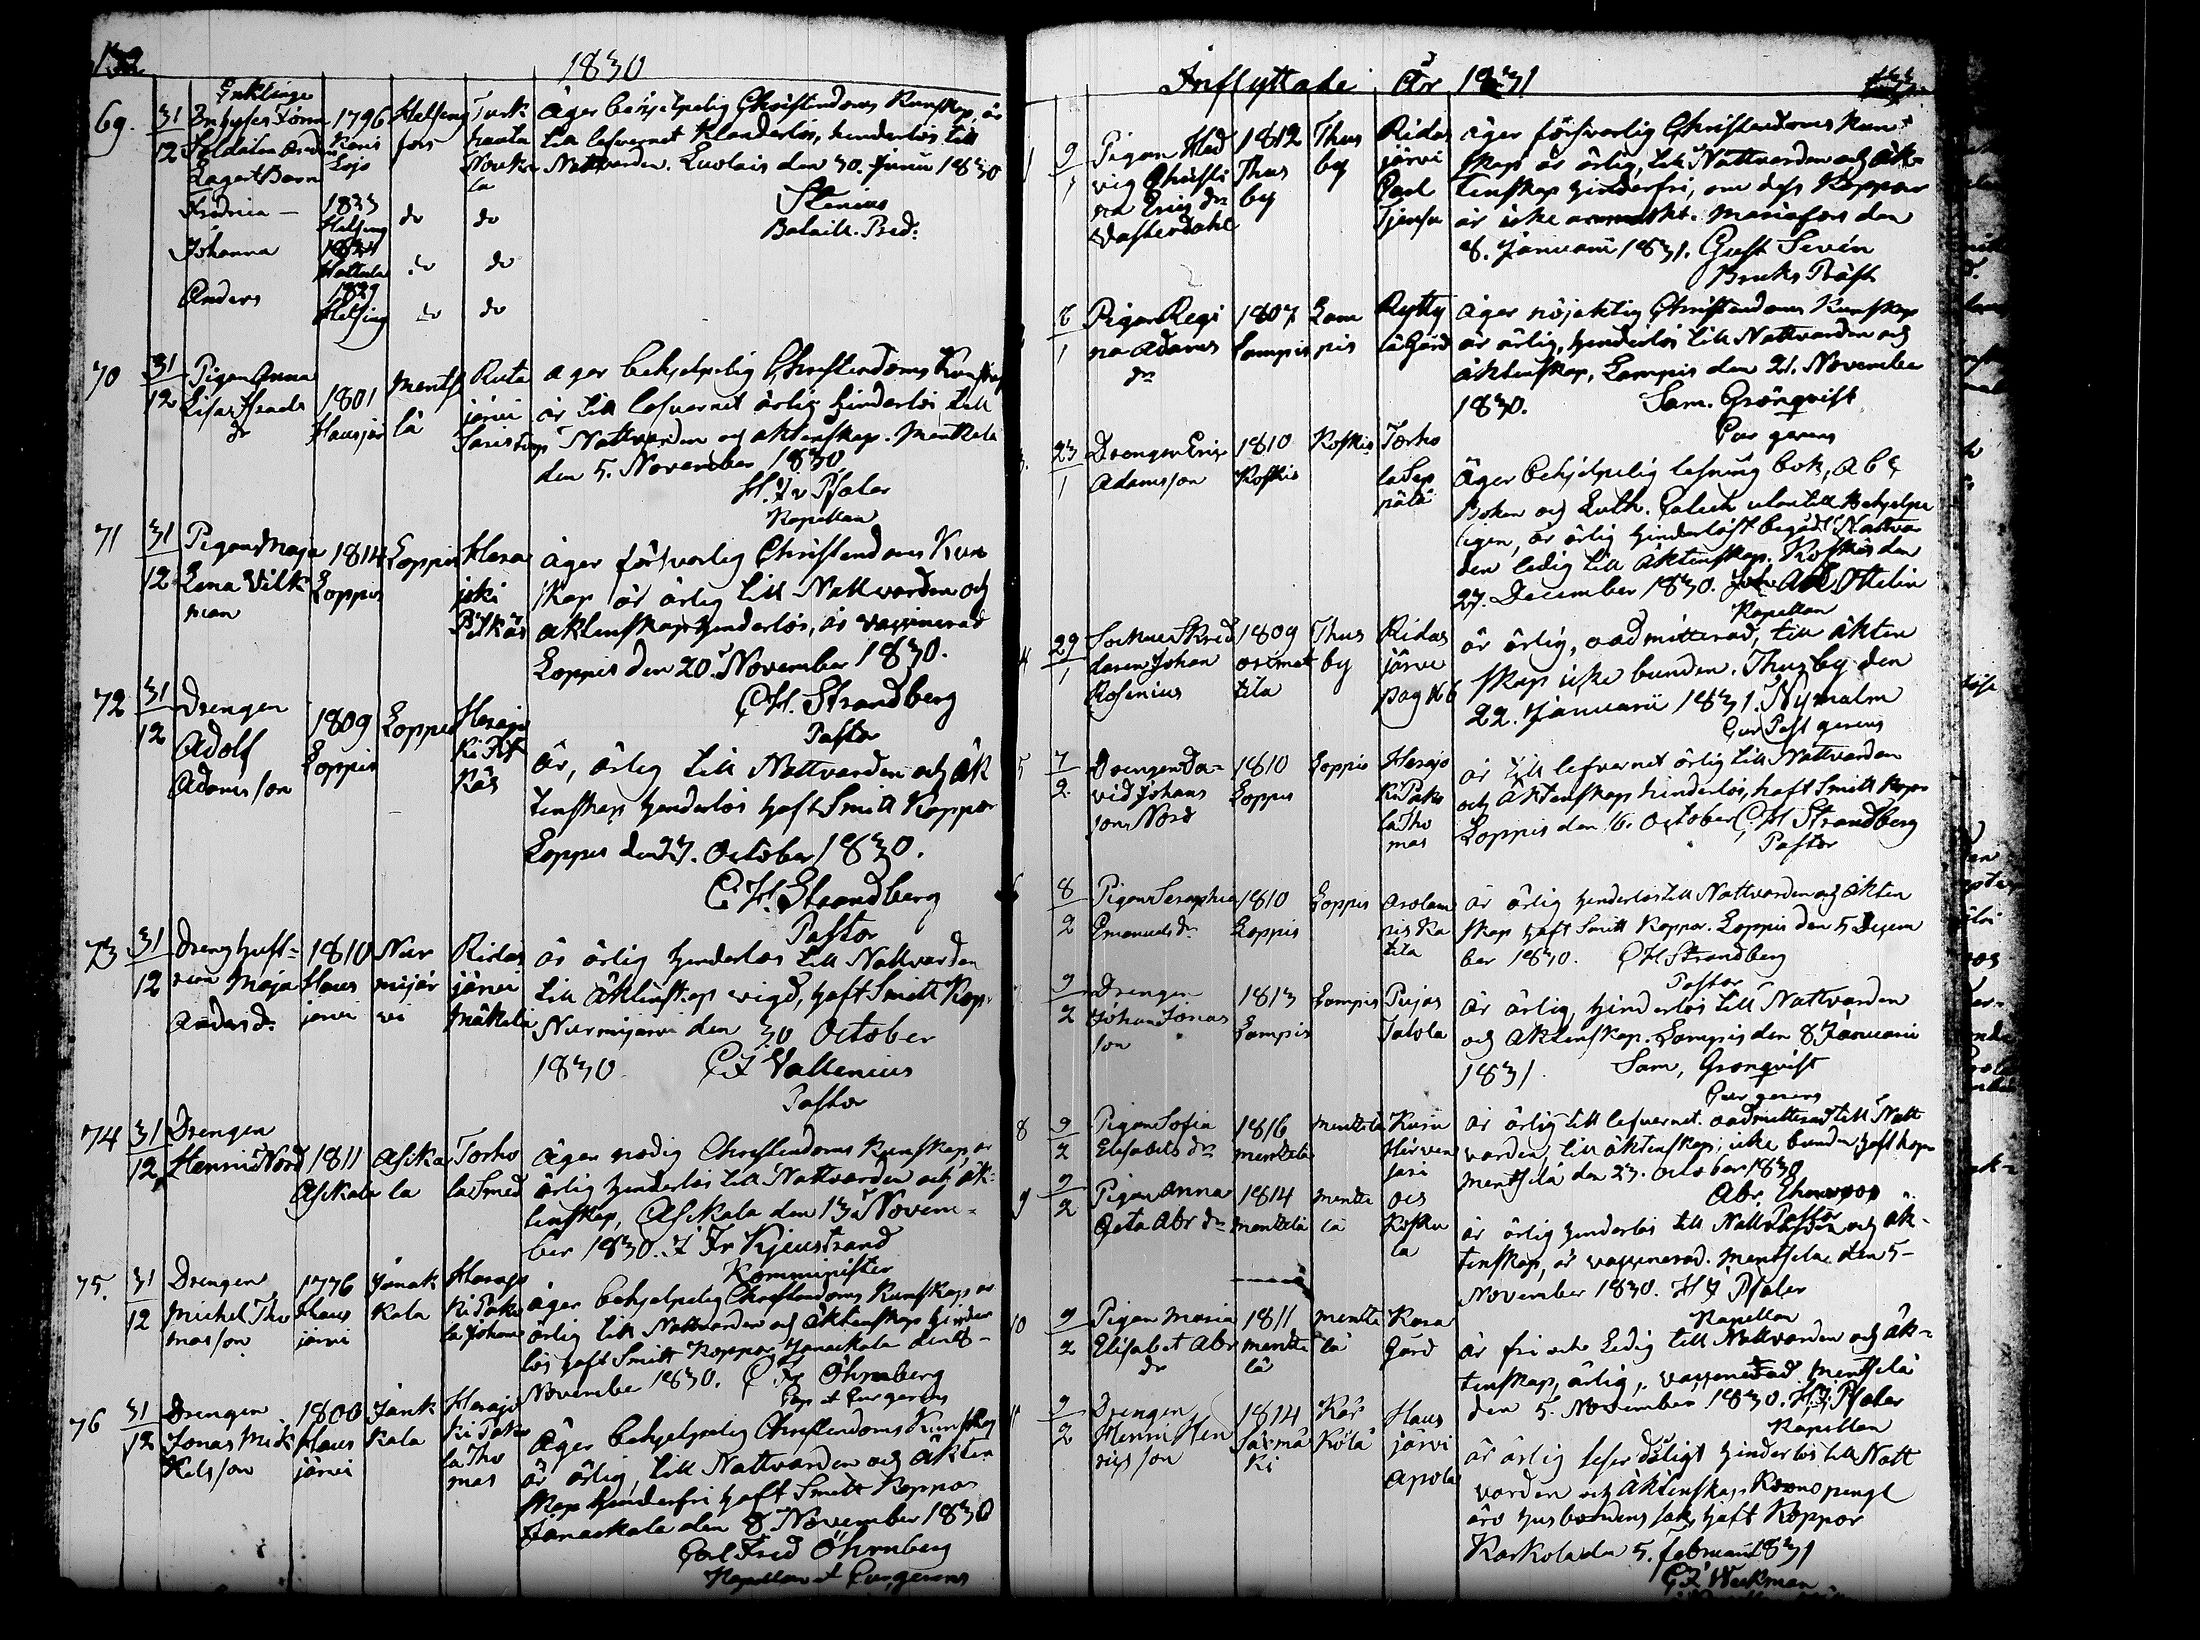 132
1830
69.
31
12
Enklinge
Inhyses Jonn
Soldaten Anders
Lagert Barn
1796
Karis
Lojo
Helsing
fors
Turk
hauta
Nouke
la
äger behjelpelig Christendoms Kunskap, är
till lefvernet klanderlös, hinderlös till
Nattvarden. Luolais den 30. Junii 1830
Stenius
Bataill. Pred:
Fredrica –
1823
Helsing
do
do
Johanna
1824
Hattula
do
do
Anders
1829
Helsing
do
do
70
31
12
Pigan Anna
Lisa Isracls
dr
1801
Hausjär
Mentse
lä
Ruta
järvi
äger behjelpelig Christendoms Kunskap
är till lefvernet ärlig hinderlös till
Nattvarden och äktenskap. Mentsela
den 5. November 1830
H. J. v Pfaler
Kapellan
71
31
12
Pigan Maja
Lena Vilk
man
1814
Loppis
Loppis
Hera
joki
Pilkäs
äger försvarlig Christendoms Kun
skap är ärlig till Nattvarden och
äktenskap hinderlös, är vaccinerad
Loppis den 20. November 1830.
C H. Strandberg
Pastor
72
31
12
Drengen
Adolf
Adamsson
1809
Loppis
Loppis
Herajo
ki Pil
käs
är, ärlig till Nattvarden och äk
tenskap hinderlös haft Smitt Koppor
Loppis den 27. October 1830.
C H. Strandberg
Pastor
73
31
12
Dreng hust-
run Maja
Anders dr
1810
Haus
järvi
Nur
mijär
vi
Ridas
järvi
Mäkelä
är ärlig hinderlös till Nattvarden
till äktenskap vigd, haft Smitt Kop.
Nurmijärvi den 30 October
1830
C J Vallenius
Pastor
74
31
12
Drengen
Henric Nord
1811
Asikala
Asika
la
Torho
la Smed
äger nödig Christendoms Kunskap, är
ärlig hinderlös till Nattvarden och äk-
tenskap, Asikala den 13 Novem-
ber 1830. J Fr Kjeustrand
Komminister
75.
31
12
Drengen
Michel Tho
masson
1776
Haus
järvi
Janak
kala
Herajo
ki Pako
la Johans
äger behjelpelig Christendoms Kunskap är
ärlig till Nattvarden och äktenskap hinder
lös haft Smitt Koppor Janackala den 8-
November 1830. C Fr Öhrnberg
Cap et Cur gerens
76
31
12
Drengen
Jonas Mic
kelsson
1800
Haus
järvi
Jank
kala
Herajo
ki Pako
la Tho
mas
äger behjelpelig Christendoms Kunskap
är ärlig, till Nattvarden och äkten
skap hinderfri haft Smitt Koppor
Janackala den 8 November 1830
Carl Fred Öhrnberg
Kapellan et Cur gerens
Inflyttade År 1831
1
9
1
Pigan Hed
vig Christi
na Eric dr
Vasterdahl
1812
Thus
by
Thus
by
Ridas
järvi
Carl
Tjensu
äger försvarlig Christendoms Kun-
skap är ärlig, till Nattvarden och äk-
tenskap hinderfri, om dess Koppor
är icke anmärkt. Mariefors den
8. Januarii 1831. Gust Sevén
Bruks Präst
8
1
Pigan Regi
na Adams
dr
1807
Lampis
Lam
pis
Rytty
lä Gård
äger nöjaktig Christendoms Kunskap
är ärlig, hinderlös till Nattvarden och
äktenskap, Lampis den 21. November
1830.
Sam. Grönqvist
Cur gerens
3.
23
1
Drengen Eric
Adamsson
1810
Koskis
Koskis
Torho
la Sep
pälä
äger behjelpelig läsning bok, Abc
Boken och Luth. Catech utantill Behjelpe
ligen, är ärlig hinderlöst begådt Nattva
den ledig till äktenskap. Koskis den
27. December 1830. Joh Ad Ottelin
Kapellan
4
29
1
Sockne Skred
daren Johan
Rosenius
1809
orimat
tila
Thus
by
Ridas
järvi
pag 166
är ärlig, oadmitterad, till äkten
skap icke bunden. Thusby den
22. Januarii 1831. Nymalm
Cur Past gerens
5
7
2
Drengen Da-
vid Johans
son Nord
1810
Loppis
Loppis
Herajo
ki Pako
la Tho
mas
är till lefvernet ärlig till Nattvarden
och äktenskap hinderlös, haft Smitt Kopor
Loppis den 16. October C H Strandberg
Pastor
6
8
2
Pigan Seraphia
Emanuels dr
1810
Loppis
Loppis
Arolam
pis Ka
tila
är ärlig hinderlös till Nattvarden och äkten
skap haft Smitt Koppor. Loppis den 5 Decem
ber 1830. C H Strandberg
Pastor
9
2
Drengen
Johan Jonas
son
1813
Lampis
Lampis
Pujas
Talola
är ärlig, hinderlös till Nattvarden
och äktenskap. Lampis den 8 Januarii
1831. Sam, Grönqvist
Cur gerens
8
9
2
Pigan Sofia
Elisabets dr
1816
Mentsela
Mentsela
Kuru
Hirven
järi
är ärlig till lefvernet. oadmitterad till Natt
varden, till äktenskap icke bunden, haft kopor
Mentselä den 23. October 1830
Abr,
Pastor
9
9
2
Pigan Anna
Greta Abr dr
1814
Mentselä
Mentse
lä
Ois
Kosku
la
är ärlig hinderlös till Nattvarden och äk-
tenskap, är vaccinerad. Mentselae den 5-
November 1830. H J Pfaler
Kapellan
10
9
2
Pigan Maria
Elisabet Abr
dr
1811
Mentse
lä
Mentse
lä
Kara
Gård
är fri och Ledig till Nattvarden och äk-
tenskap, ärlig,. vaccinerad Mentselä
den 5. November 1830. H. J. Pfaler
Kapellan
11
9
2
Drengen
Henric Hen
ricsson
1814
Säxmä
ki
Kär
kölä
Haus
järvi
Apola
är ärlig läser dåligt hinderlös till Natt
varden och äktenskap. Kronopengl
äro husbondens sak haft Koppor
Karkola den 5. februari 1831
C J Weckman